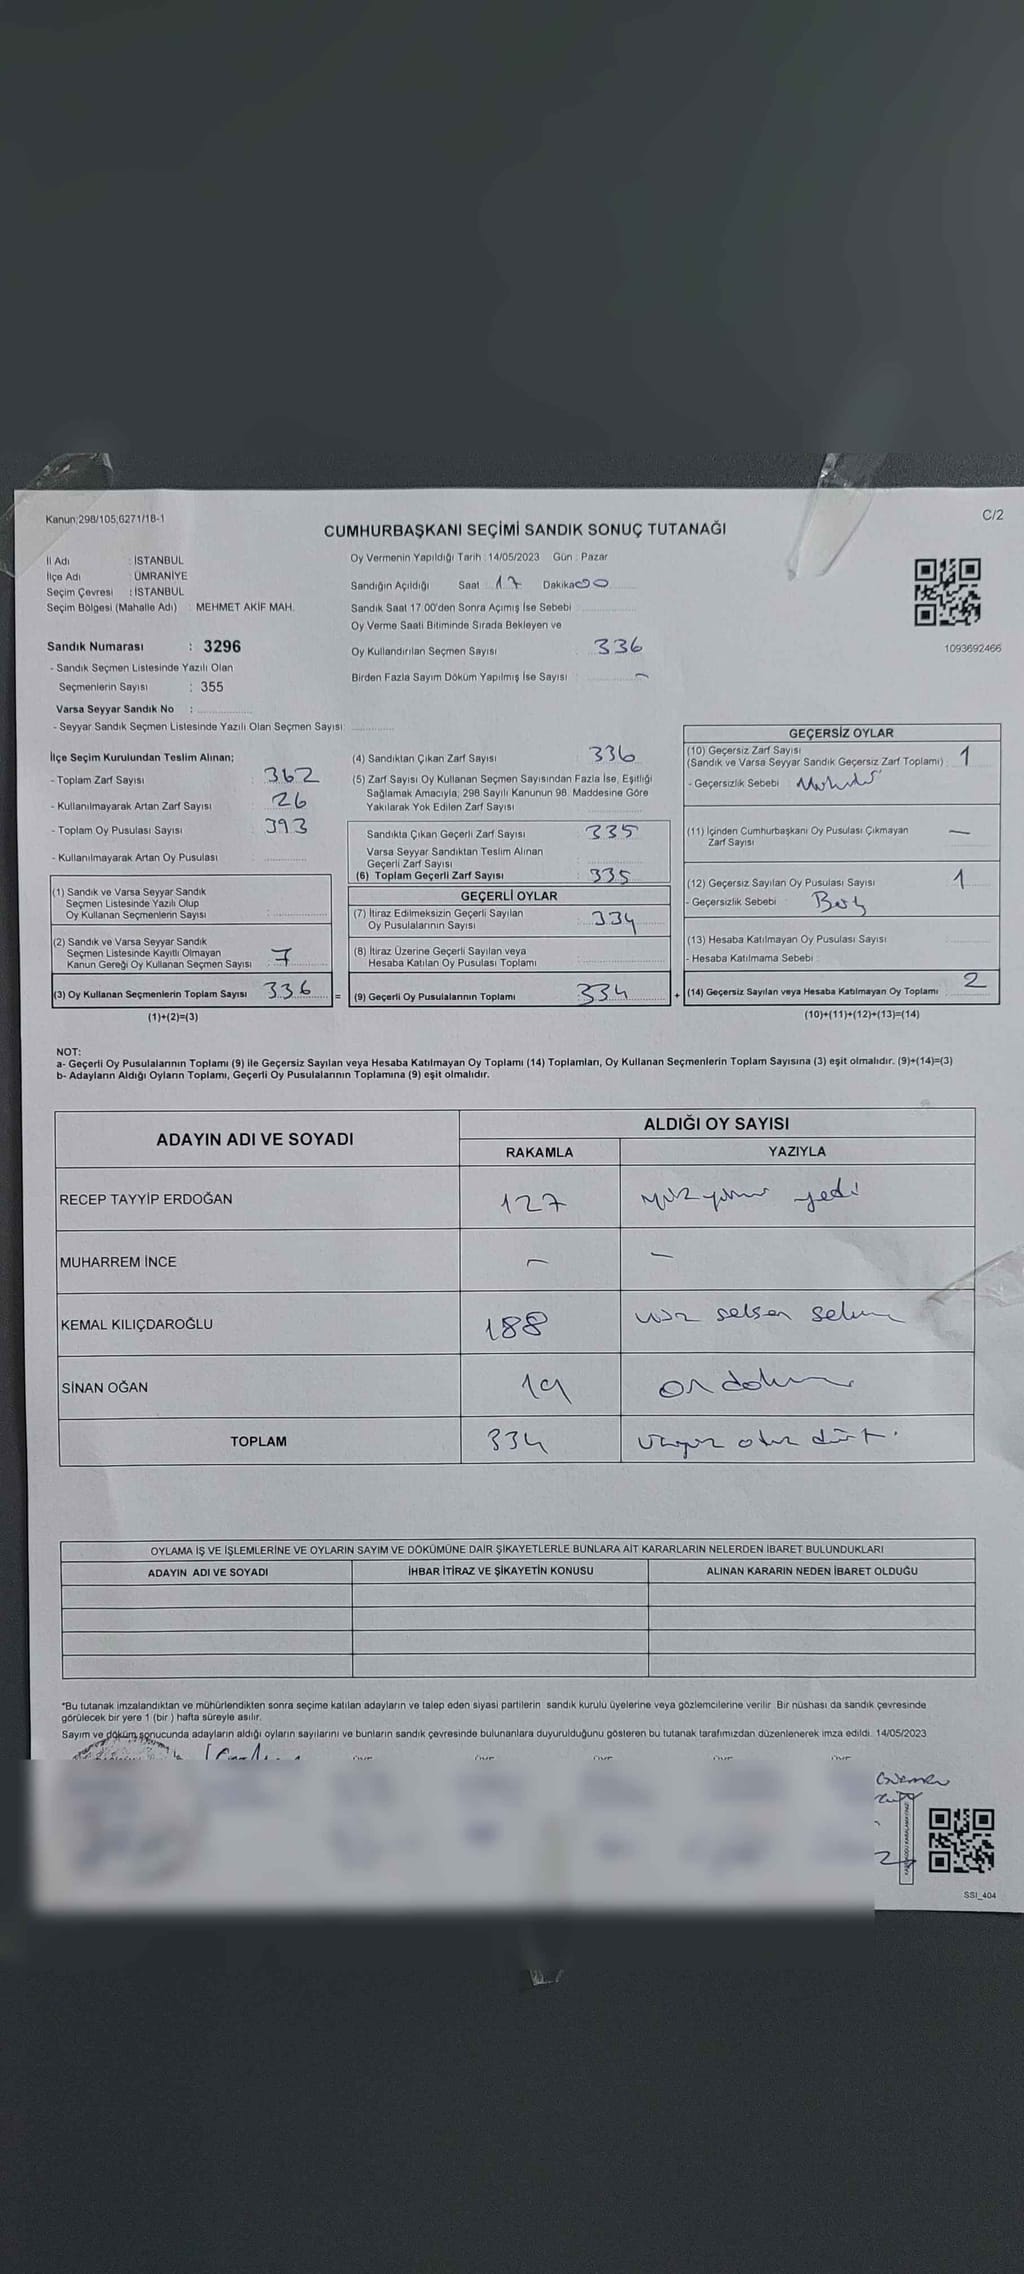 Kanun;298/105;6271/18-1
C/2
CUMHURBAŞKANI SEÇİMİ SANDIK SONUÇ TUTANAĞI
İl Adı : İSTANBUL
İlçe Adı : ÜMRANİYE
Seçim Çevresi : İSTANBUL
Seçim Bölgesi (Mahalle Adı) : MEHMET AKİF MAH.
Sandık Numarası : 3296
- Sandık Seçmen Listesinde Yazılı Olan
Seçmenlerin Sayısı : 355
Varsa Seyyar Sandık No :
- Seyyar Sandık Seçmen Listesinde Yazılı Olan Seçmen Sayısı:
Oy Vermenin Yapıldığı Tarih : 14/05/2023 Gün : Pazar
Sandığın Açıldığı Saat : 17 Dakika 00
Sandık Saat 17.00'den Sonra Açımış İse Sebebi :
Oy Verme Saati Bitiminde Sırada Bekleyen ve
Oy Kullandırılan Seçmen Sayısı : 336
Birden Fazla Sayım Döküm Yapılmış İse Sayısı : —
1093692466
İlçe Seçim Kurulundan Teslim Alınan;
- Toplam Zarf Sayısı : 362
- Kullanılmayarak Artan Zarf Sayısı : 26
- Toplam Oy Pusulası Sayısı : 393
- Kullanılmayarak Artan Oy Pusulası :
(1) Sandık ve Varsa Seyyar Sandık
Seçmen Listesinde Yazılı Olup
Oy Kullanan Seçmenlerin Sayısı :
(2) Sandık ve Varsa Seyyar Sandık
Seçmen Listesinde Kayıtlı Olmayan
Kanun Gereği Oy Kullanan Seçmen Sayısı : 7
(3) Oy Kullanan Seçmenlerin Toplam Sayısı 336 =
(1)+(2)=(3)
(4) Sandıktan Çıkan Zarf Sayısı : 336
(5) Zarf Sayısı Oy Kullanan Seçmen Sayısından Fazla İse, Eşitliği
Sağlamak Amacıyla; 298 Sayılı Kanunun 98. Maddesine Göre
Yakılarak Yok Edilen Zarf Sayısı :
Sandıkta Çıkan Geçerli Zarf Sayısı : 335
Varsa Seyyar Sandıktan Teslim Alınan
Geçerli Zarf Sayısı :
(6) Toplam Geçerli Zarf Sayısı : 335
GEÇERLİ OYLAR
(7) İtiraz Edilmeksizin Geçerli Sayılan
Oy Pusulalarının Sayısı : 334
(8) İtiraz Üzerine Geçerli Sayılan veya
Hesaba Katılan Oy Pusulası Toplamı :
(9) Geçerli Oy Pusulalarının Toplamı 334 +
GEÇERSİZ OYLAR
(10) Geçersiz Zarf Sayısı
(Sandık ve Varsa Seyyar Sandık Geçersiz Zarf Toplamı) : 1
- Geçersizlik Sebebi :
(11) İçinden Cumhurbaşkanı Oy Pusulası Çıkmayan
Zarf Sayısı : —
(12) Geçersiz Sayılan Oy Pusulası Sayısı : 1
- Geçersizlik Sebebi : Boş
(13) Hesaba Katılmayan Oy Pusulası Sayısı :
- Hesaba Katılmama Sebebi :
(14) Geçersiz Sayılan veya Hesaba Katılmayan Oy Toplamı : 2
(10)+(11)+(12)+(13)=(14)
NOT:
a- Geçerli Oy Pusulalarının Toplamı (9) ile Geçersiz Sayılan veya Hesaba Katılmayan Oy Toplamı (14) Toplamları, Oy Kullanan Seçmenlerin Toplam Sayısına (3) eşit olmalıdır. (9)+(14)=(3)
b- Adayların Aldığı Oyların Toplamı, Geçerli Oy Pusulalarının Toplamına (9) eşit olmalıdır.
ADAYIN ADI VE SOYADI
ALDIĞI OY SAYISI
RAKAMLA YAZIYLA
RECEP TAYYİP ERDOĞAN 127 yüz yirmi yedi
MUHARREM İNCE — —
KEMAL KILIÇDAROĞLU 188 yüz seksen sekiz
SİNAN OĞAN 19 on dokuz
TOPLAM 334 üçyüz otuz dört.
OYLAMA İŞ VE İŞLEMLERİNE VE OYLARIN SAYIM VE DÖKÜMÜNE DAİR ŞİKAYETLERLE BUNLARA AİT KARARLARIN NELERDEN İBARET BULUNDUKLARI
ADAYIN ADI VE SOYADI İHBAR İTİRAZ VE ŞİKAYETİN KONUSU ALINAN KARARIN NEDEN İBARET OLDUĞU
*Bu tutanak imzalandıktan ve mühürlendikten sonra seçime katılan adayların ve talep eden siyasi partilerin sandık kurulu üyelerine veya gözlemcilerine verilir. Bir nüshası da sandık çevresinde
görülecek bir yere 1 (bir) hafta süreyle asılır.
Sayım ve döküm sonucunda adayların aldığı oyların sayılarını ve bunların sandık çevresinde bulunanlara duyurulduğunu gösteren bu tutanak tarafımızdan düzenlenerek imza edildi. 14/05/2023
SSI_404